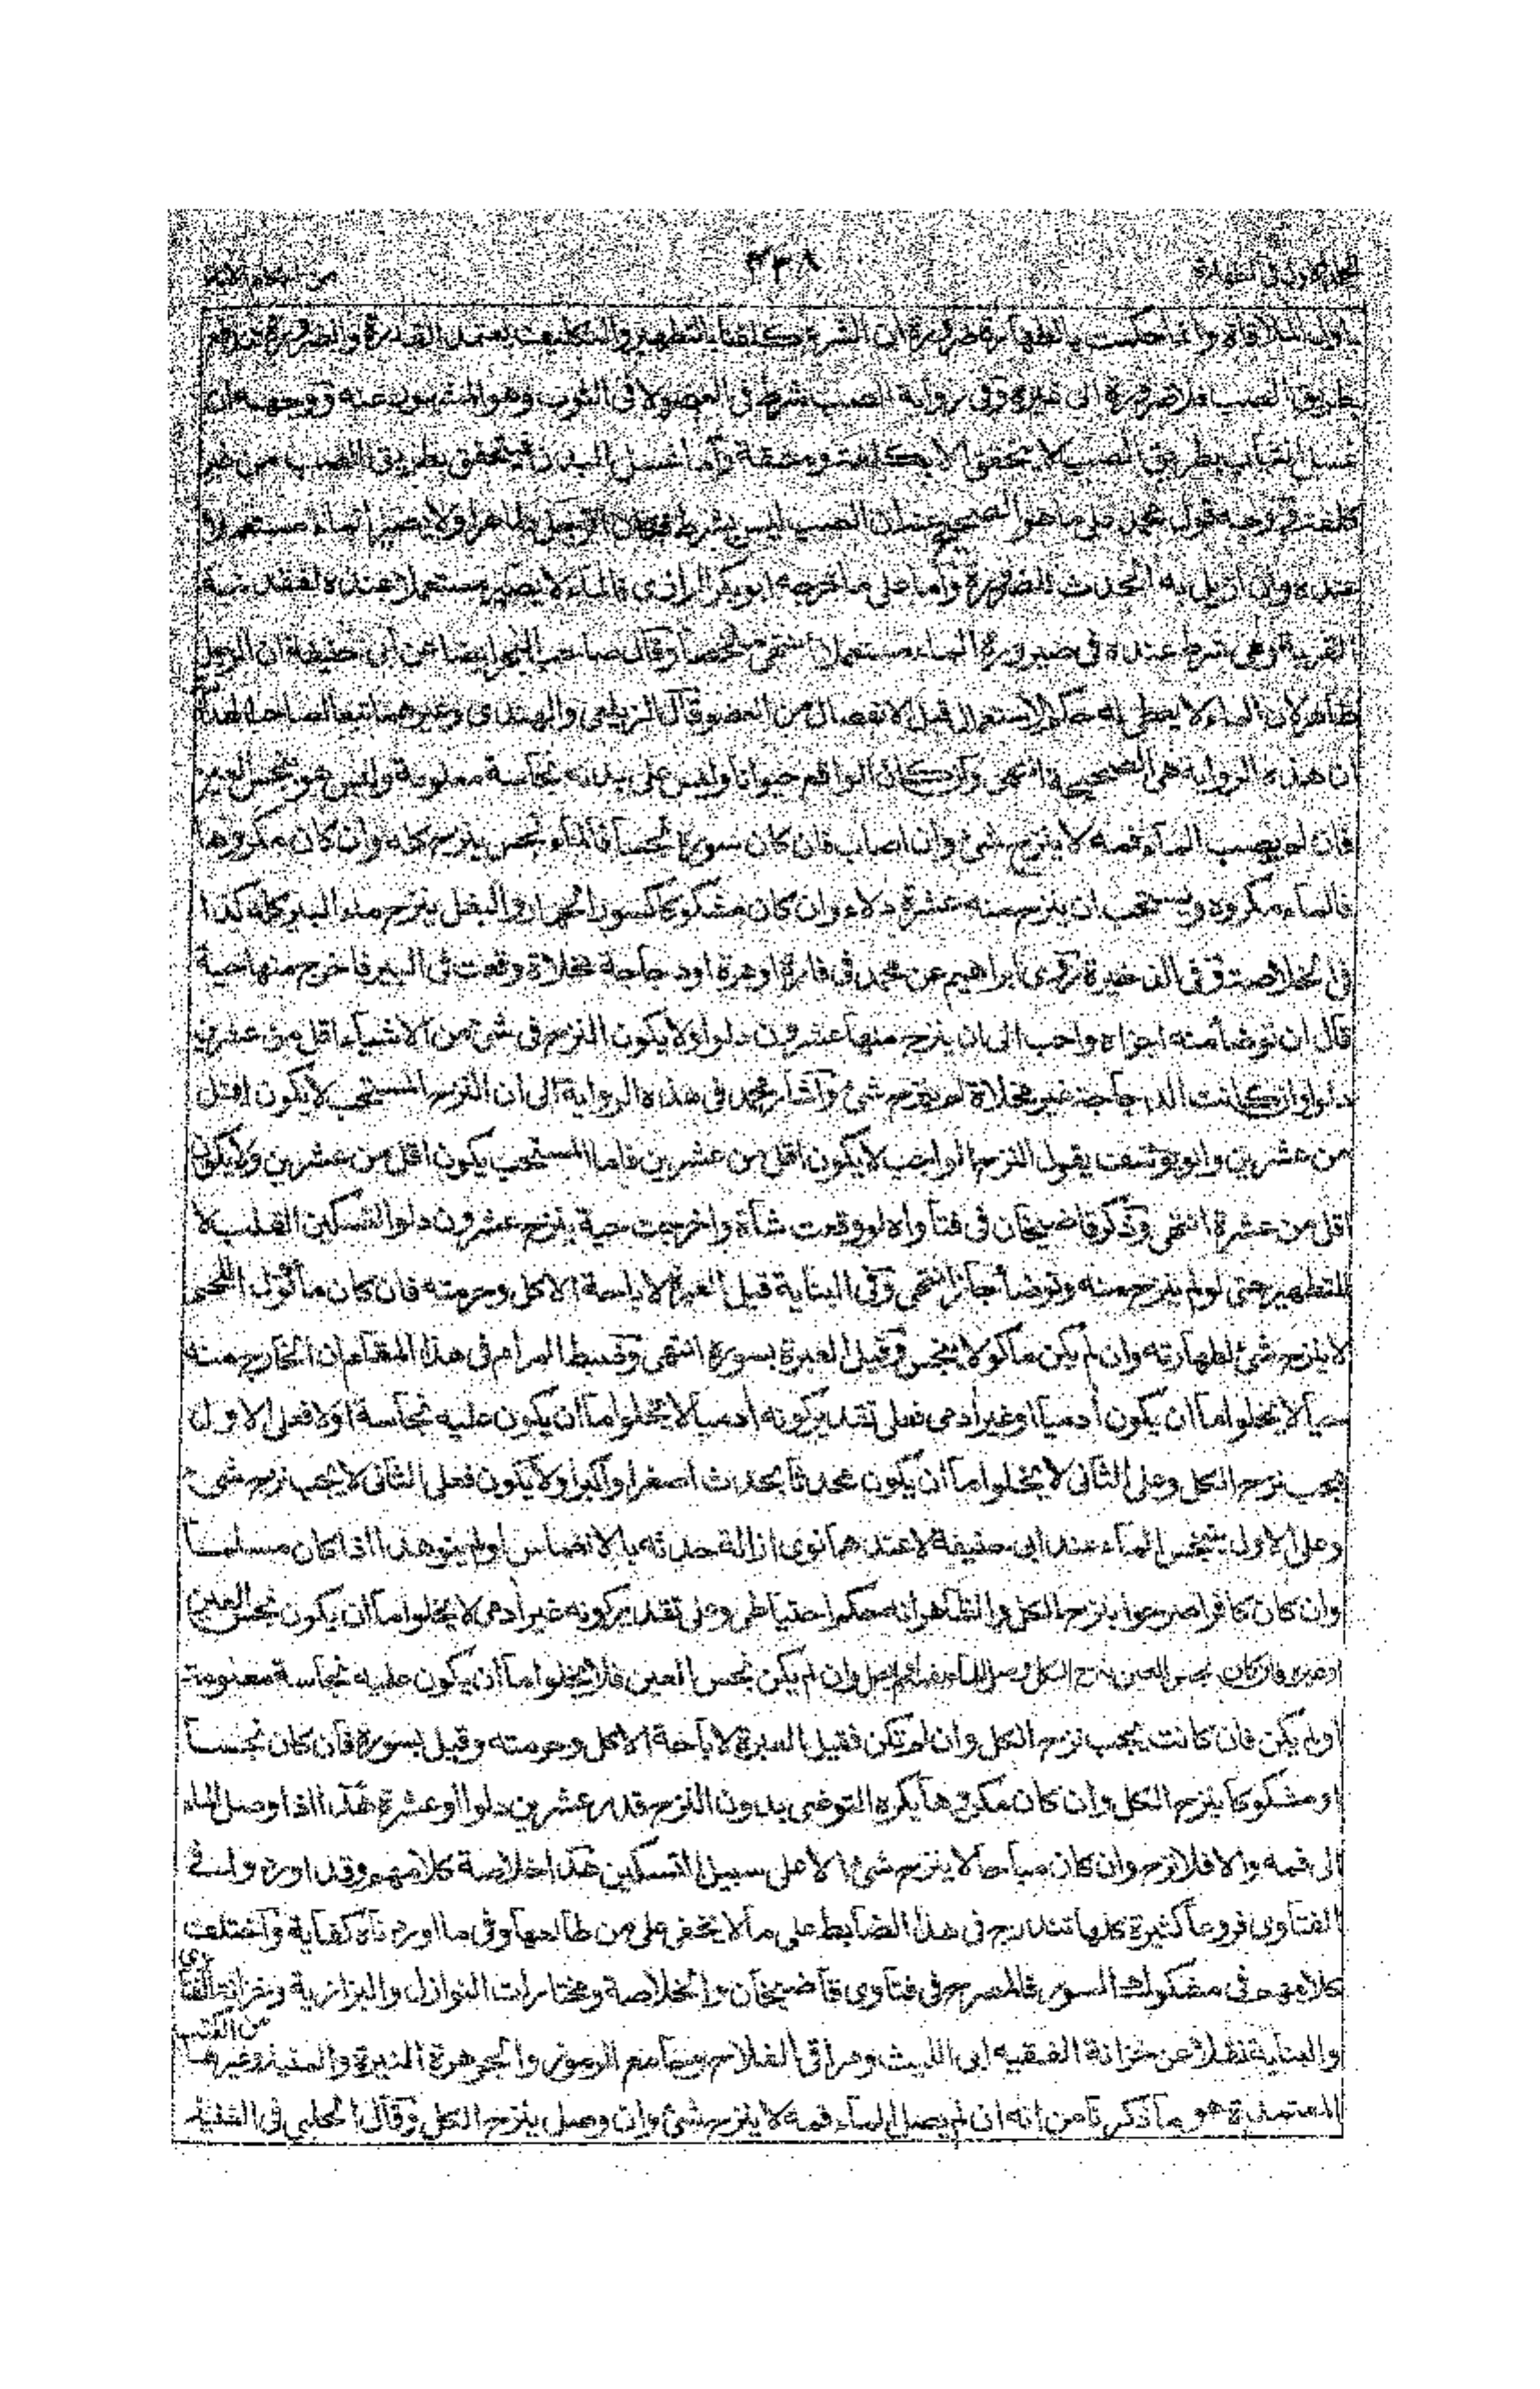 ٤٣٨
باول الملاقاة وانما حكمت بالطهارة ضرورة ان الشرع كلفنا بالتطهير والتكليف يعتمد القدرة والضرورة تندفع
بطريق الصب فلا ضرورة الى غيره وفى رواية الصب شرط فى العضو لا فى الثوب وهو المشهور عنه ووجهه ان
غسل الثياب بطريق الصب لا يتحقق الا بكلفة ومشقة واما غسل البدن فيتحقق بطريق الصب من غير
كلفة ووجه قول محمد على ما هو الصحيح عنه ان الصب ليس بشرط فكان الرجل طاهرا ولا يصير الماء مستعملا
عنده وان ازيل به الحدث للضرورة واما على ما خرجه ابو بكر الرازى فالماء لا يصير مستعملا عنده لفقد نية
القربة وهى شرط عنده فى صيرورة الماء مستعملا انتهى ملخصا وقال صاحب ايضا عن ابى حنيفة ان الرجل
طاهر لان الماء لا يعطى له حكم الاستعمال قبل الانفصال من العضو قال الزيلعى والهندى وغيرهما تبعا لصاحب الهداية
ان هذه الرواية هى الصحيحة انتهى وان كان الواقع حيوانا وليس على بدنه نجاسة معلومة وليس هو نجس العين
فان لم يصب الماء فمه لا ينزح شئ وان اصاب فان كان سوره نجسا فالماء نجس ينزح كله وان كان مكروها
فالماء مكروه ويستحب ان ينزح منه عشرة دلاء وان كان مشكوكا كسور الحمار والبغل ينزح ماء البير كله كذا
فى الخلاصة وفى الذخيرة روى ابراهيم عن محمد فى فارة او هرة او دجاجة مخلاة وقعت فى البير فاخرج منها حية
قال ان توضأ منه اجزاه واحب الى ان ينزح منها عشرون دلوا ولا يكون النزح فى شئ من الاشياء اقل من عشرين
دلوا وان كانت الدجاجة غير مخلاة لم ينزح شئ واشار محمد فى هذه الرواية الى ان النزح المستحب لا يكون اقل
من عشرين وابو يوسف يقول النزح الواجب لا يكون اقل من عشرين فاما المستحب يكون اقل من عشرين ولا يكون
اقل من عشرة انتهى وذكر قاضيخان فى فتاواه لو وقعت شاة واخرجت حية ينزح عشرون دلوا لتسكين القلب لا
للتطهير حتى لو لم ينزح منه وتوضأ جاز انتهى وفى البناية قيل العبرة لاباحة الاكل وحرمته فان كان ماكول اللحم
لا ينزح شئ لطهارته وان لم يكن ماكولا ينجس وقيل العبرة بسوره انتهى وضبط المرام فى هذا المقام ان الخارج منه
حيا لا يخلو اما ان يكون أدميا او غير أدمى فعلى تقدير كونه أدميا لا يخلو اما ان يكون عليه نجاسة او لا فعلى الاول
يجب نزح الكل وعلى الثانى لا يخلو اما ان يكون محدثا بحدث اصغر او اكبر او لا يكون فعلى الثانى لا يجب نزح شئ
وعلى الاول ينجس الماء عند ابى حنيفة لا عندهما نوى ازالة حدثه بالانغماس او لم ينو هذا اذا كان مسلما
وان كان كافرا صرحوا بنزح الكل والظاهر انه حكم احتياطى وعلى تقدير كونه غير أدمى لا يخلو اما ان يكون نجس العين
او غيره فان كان نجس العين ينزح الكل وصل الماء فمه او لم يصل وان لم يكن نجس العين فلا يخلو اما ان يكون عليه نجاسة معلومة
او لم يكن فان كانت يجب نزح الكل وان لم تكن فقيل العبرة لاباحة الاكل وحرمته وقيل بسوره فان كان نجسا
او مشكوكا ينزح الكل وان كان مكروها يكره التوضى بدون النزح قدر عشرين دلوا او عشرة هذا اذا وصل الماء
الى فمه والا فلا نزح وان كان مباحا لا ينزح شئ الا على سبيل التسكين هذا خلاصة كلامهم وقد اوردوا فى
الفتاوى فروعا كثيرة كلها تندرج فى هذا الضابط على ما لا يخفى على من طالعها وفى ما اوردناه كفاية واختلف
كلامهم فى مشكوك السور فالمصرح فى فتاوى قاضيخان والخلاصة ومختارات النوازل والبزازية وخزانة الفتاوى
والبناية نقلا عن خزانة الفقيه ابى الليث ومراقى الفلاح وجامع الرموز والجوهرة النيرة والمنية وغيرها من الكتب
المعتمدة هو ما ذكرنا من انه ان لم يصل الماء فمه لا ينزح شئ وان وصل ينزح الكل وقال الحلبى فى الغنية